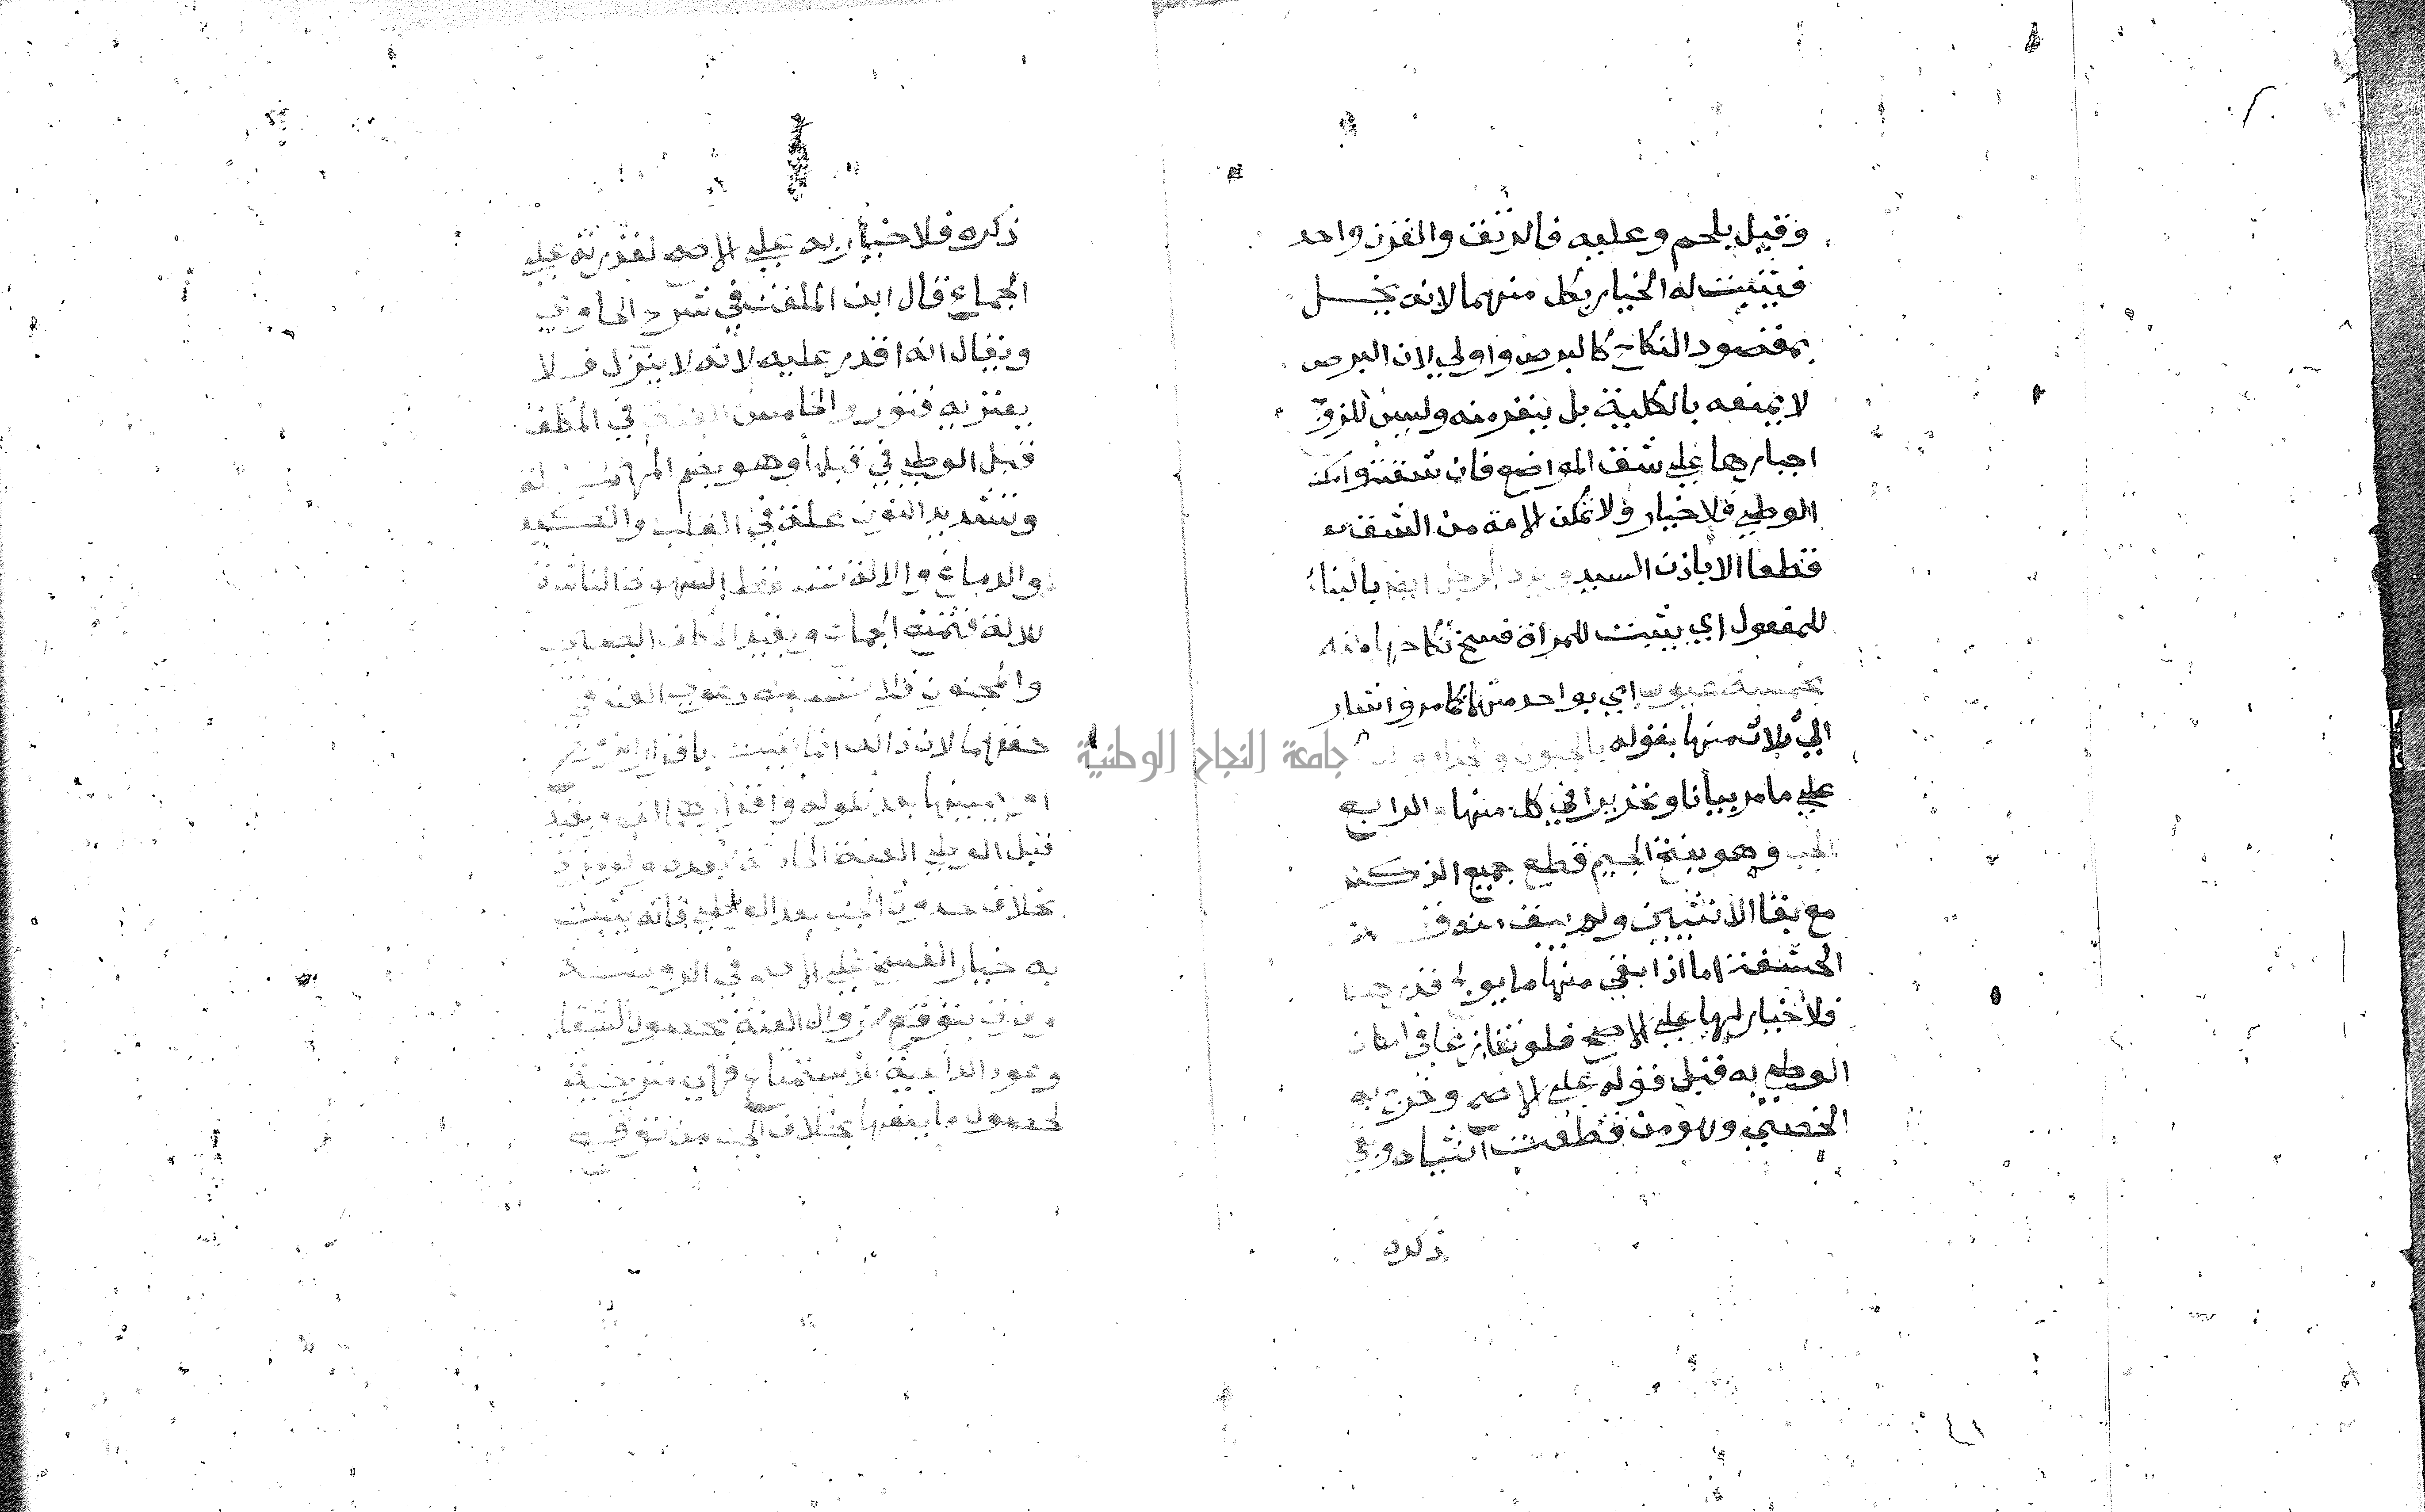 وقيل بلحم وعليه فالرتق والقرن واحد
فيثبت له الخيار بكل منهما لانه يخل
بمقصود النكاح كالبرص واولي لان البرص
لا يمنعه بالكلية بل ينفر منه وليس للزوج
اجبارها علي شق المواضع فان شقته وامكن
الوطي فلا خيار ولا تمكن الامة من الشق
قطعا الا باذن السيد ويرد الرجل ايضا بالبناء
للمفعول اي يثبت للمراة فسخ نكاحها منه
بخمسة عيوب اي بواحد منها كما مر واشار
الي ثلاثة منها بقوله بالجنون والجذام و
علي ما مر بيانا وتحريرا في كل منها الرابع
الجب وهو بفتح الجيم قطع جميع الذكر
مع بقا الانثيين ولم يبق منه قدر
الحشفة اما اذا بقي منها ما يولج قدرها
فلا خيار لها علي الاصح فلو تنازعا في امكان
الوطي به قبل قوله علي الاصح وخرج به
الخصي وهو من قطعت انثياه وبقي
ذكره
ذكره فلا خيار به علي الاصح لقدرته علي
الجماع قال ابن الملقن في شرح الحاوي
ويقال انه اقدر عليه لانه لا ينزل فلا
يعتريه فتور والخامس العنة في المكلف
قبل الوطي في قبلها وهو بضم المهملة
وتشديد النون علة في القلب والكبد
والدماغ والالة تسقط الشهوة الناشرة
للالة فتمنع الجماع وبقيد المكلف الصبي
والمجنون فلا تسمع دعوي العنة في
حقهما لان ذلك انما يثبت باقرار الزوج
او يمينها بعد نكوله واقرارهما لغو وبقيد
قبل الوطي العنة الحادثة بعده ولو مرة
بخلاف حدوث الجب بعد الوطي فانه يثبت
به خيار الفسخ علي الاصح في الروضة
وفرق بتوقع زوال العنة بحصول الشفا
وعود الداعية للاستمتاع فهي مترجية
لحصول ما يعفها بخلاف الجب من توقع
جامعة النجاح الوطنية